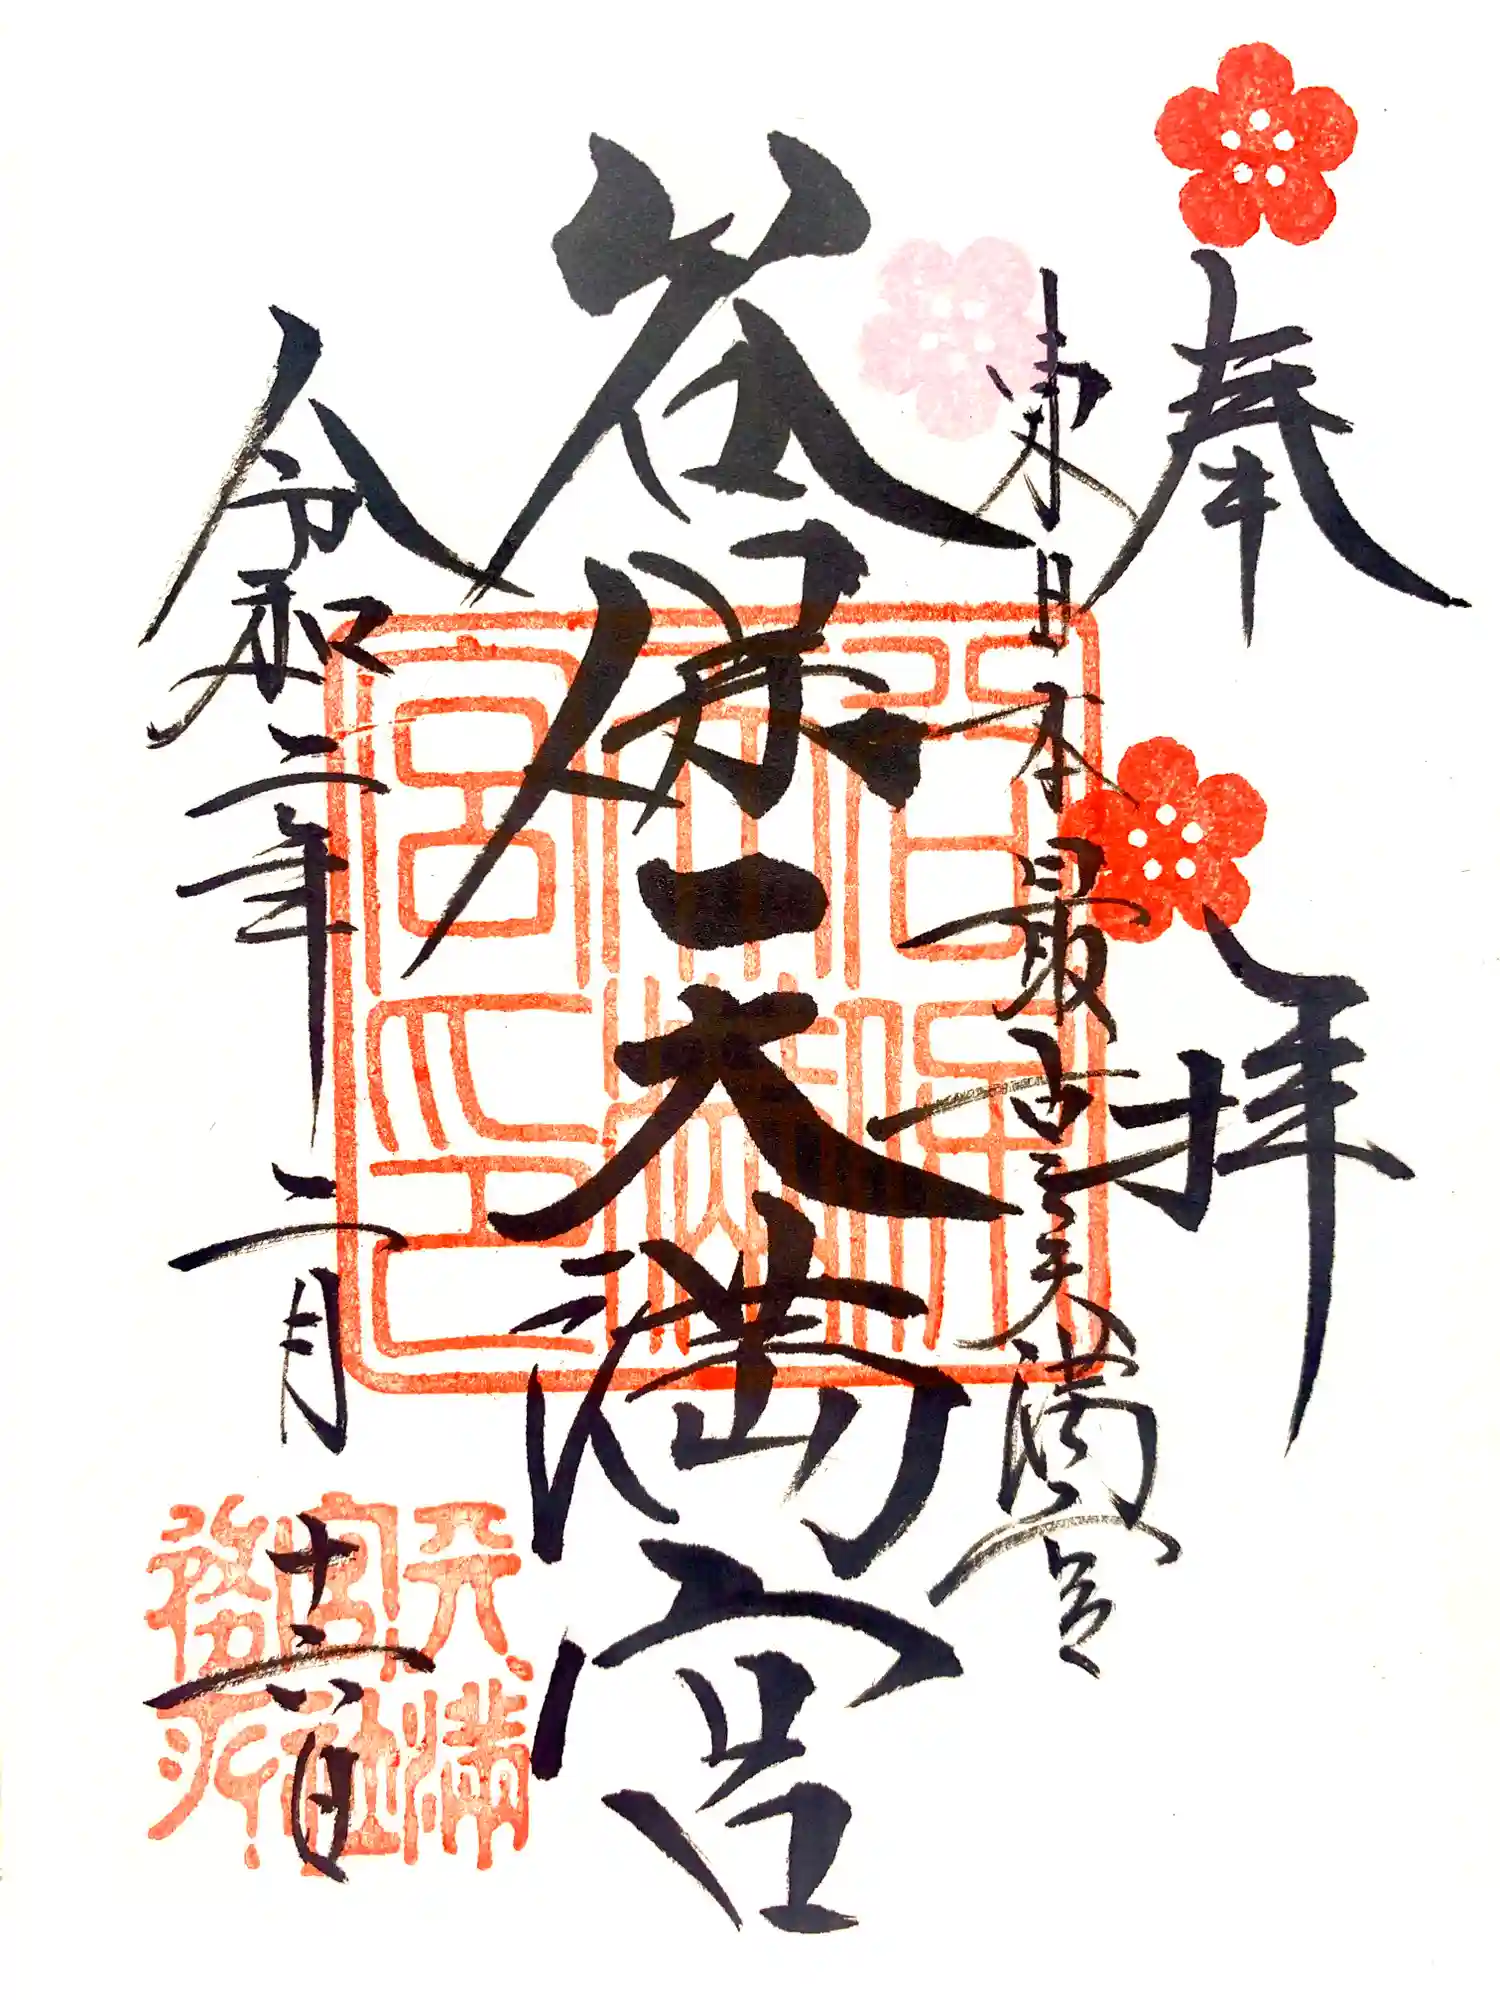 奉拝
東日本最古之天満宮
谷保天満宮
令和二年二月十六日
谷保
天満
宮之印
天満
宮社
務所